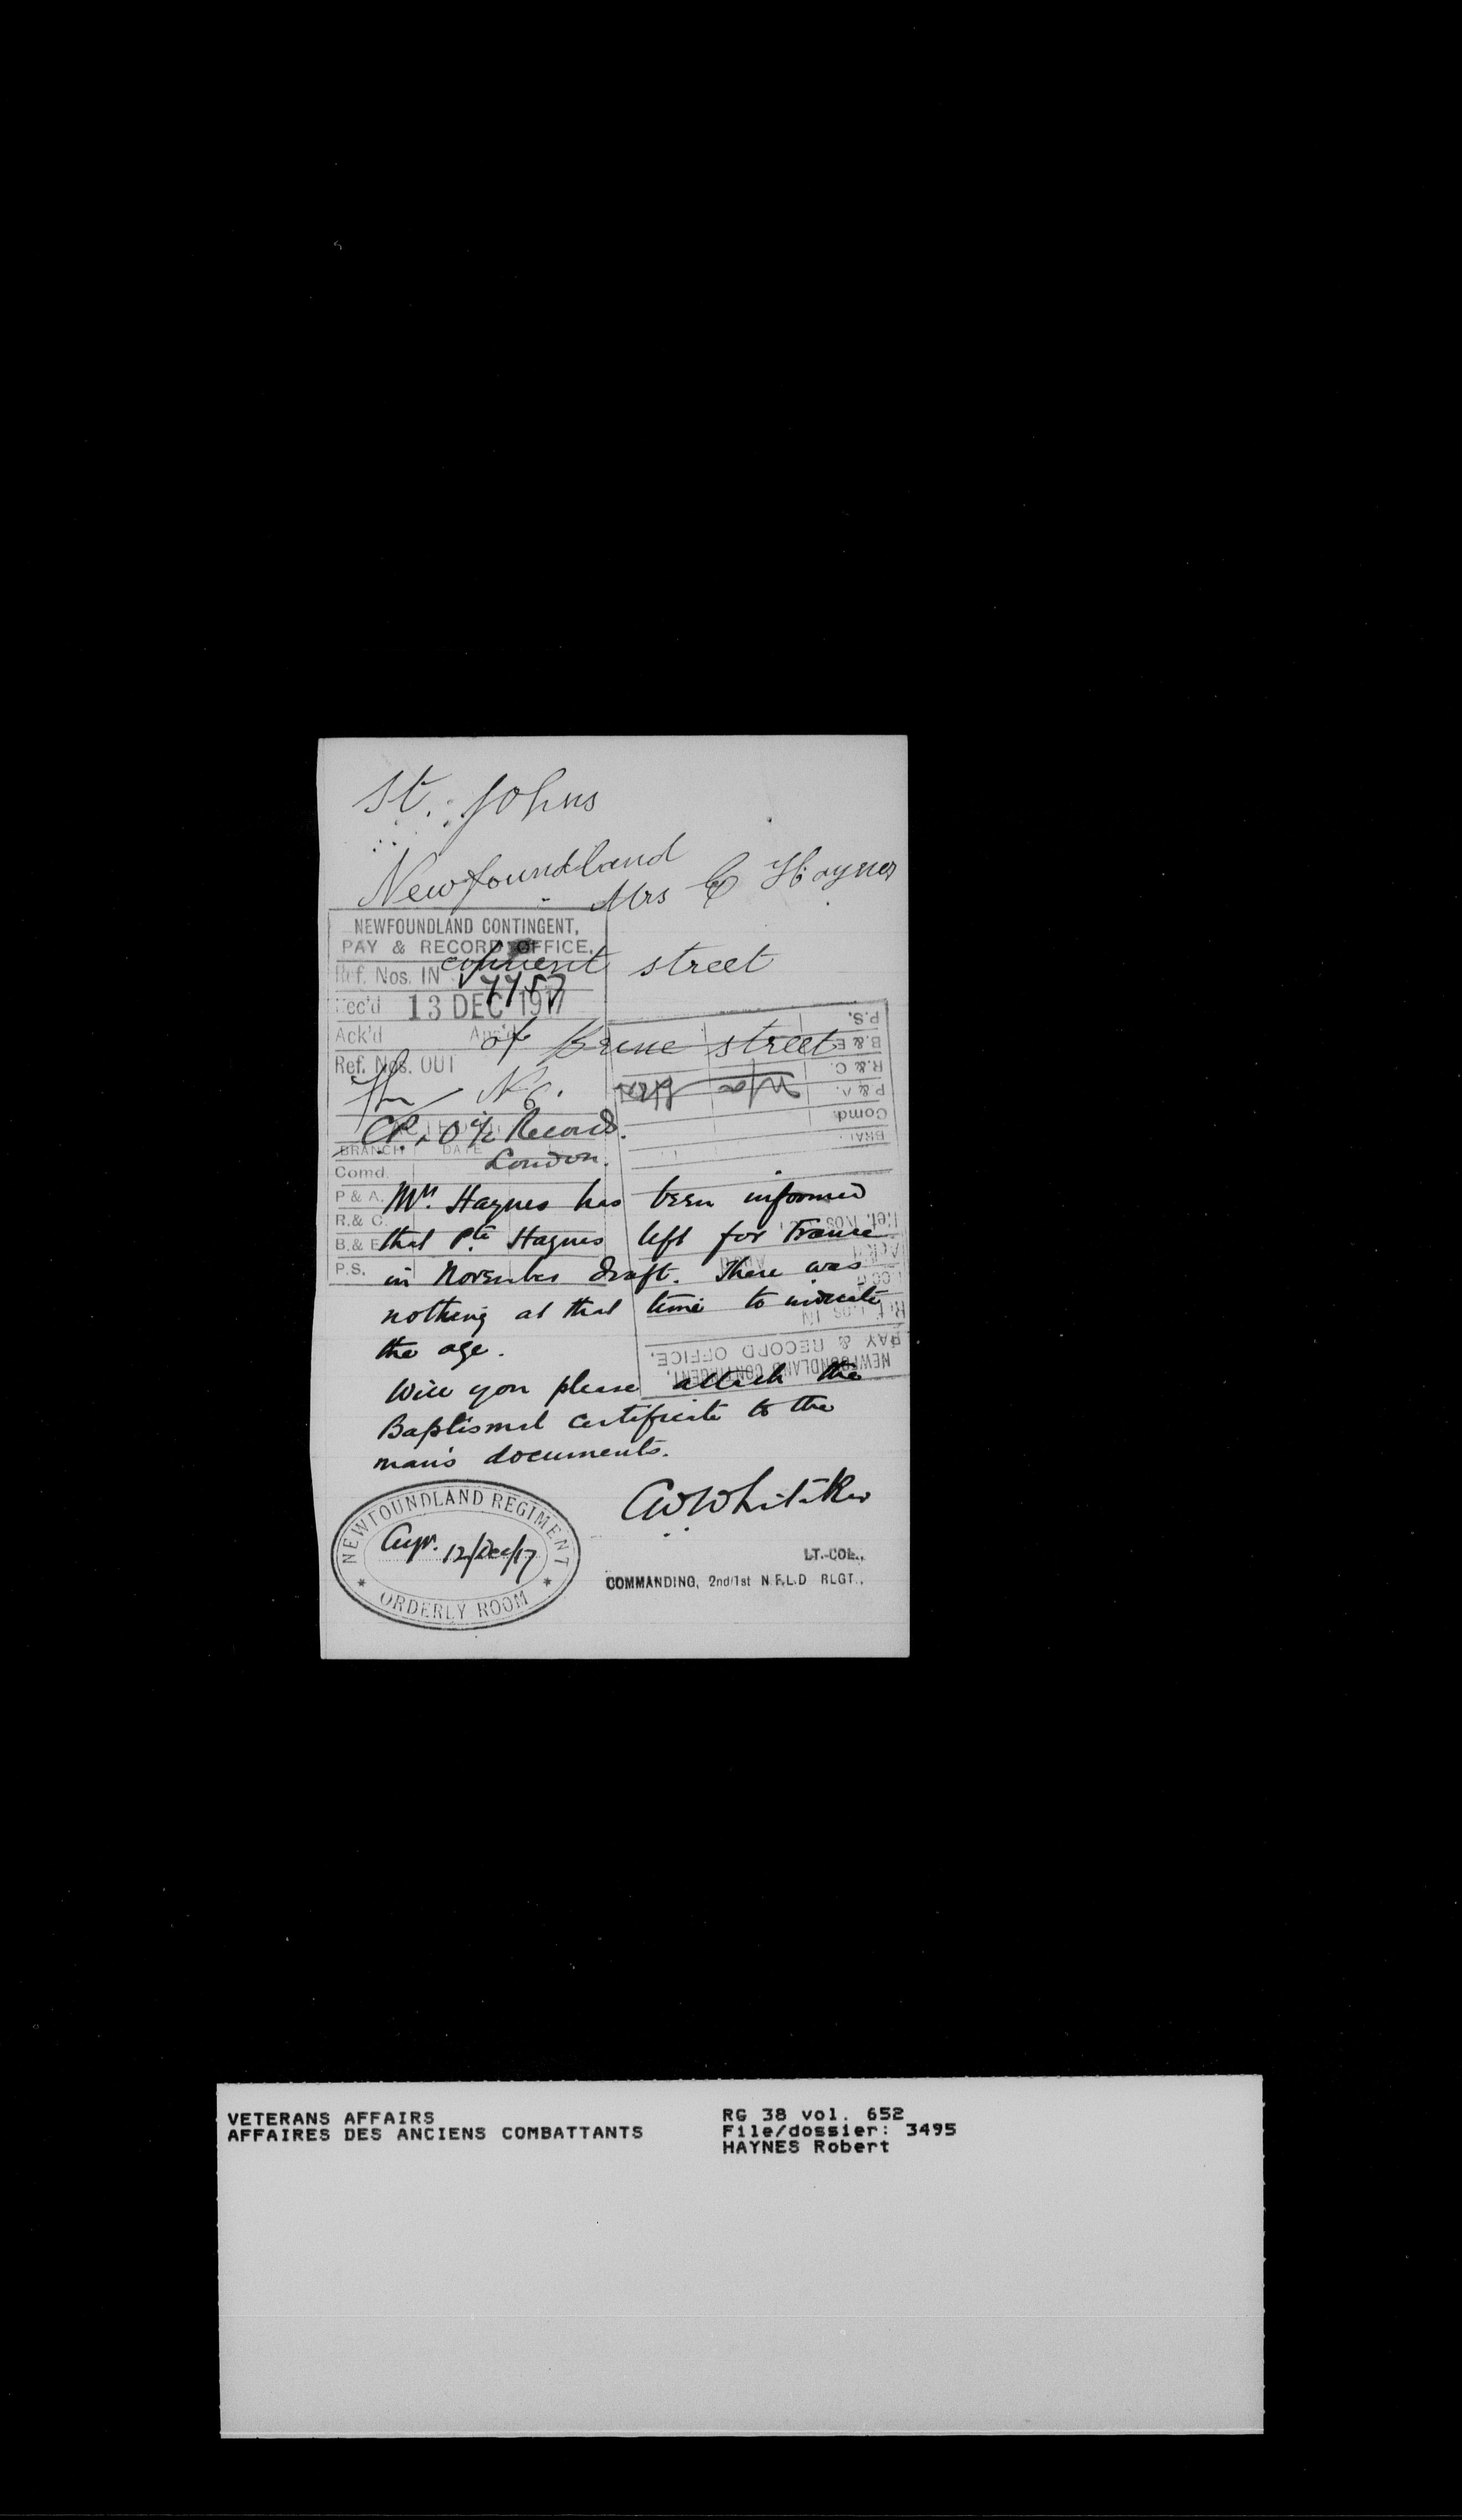 St. Johns
Newfoundland
Mrs C Haynes
NEWFOUNDLAND CONTINGENT,
PAY & RECORD OFFICE.
street
Ref. Nos. IN
Rec'd 13 DEC 1917
Ack'd
of Brine street
Ref. Nos. OUT
C.P. & O i/c Records.
London.
BRANCH DATE
Comd.
P & A.
R. & C.
B. & E.
P.S.
Mrs. Haynes has been informed
that Pte Haynes left for France
in November draft. There was
nothing at that time to indicate
the age.
Will you please attach the
Baptismal certificate to the
man's documents.
P.S.
B. & E.
R. & C.
P & A.
Comd.
Ref. Nos. IN
PAY & RECORD OFFICE.
NEWFOUNDLAND CONTINGENT,
CWWhitaker
LT.-COL.,
COMMANDING, 2nd/1st N.F.L.D RLGT.,
NEWFOUNDLAND REGIMENT
Ayr. 12/Dec/17
* ORDERLY ROOM *
VETERANS AFFAIRS
AFFAIRES DES ANCIENS COMBATTANTS
RG 38 vol. 652
File/dossier: 3495
HAYNES Robert